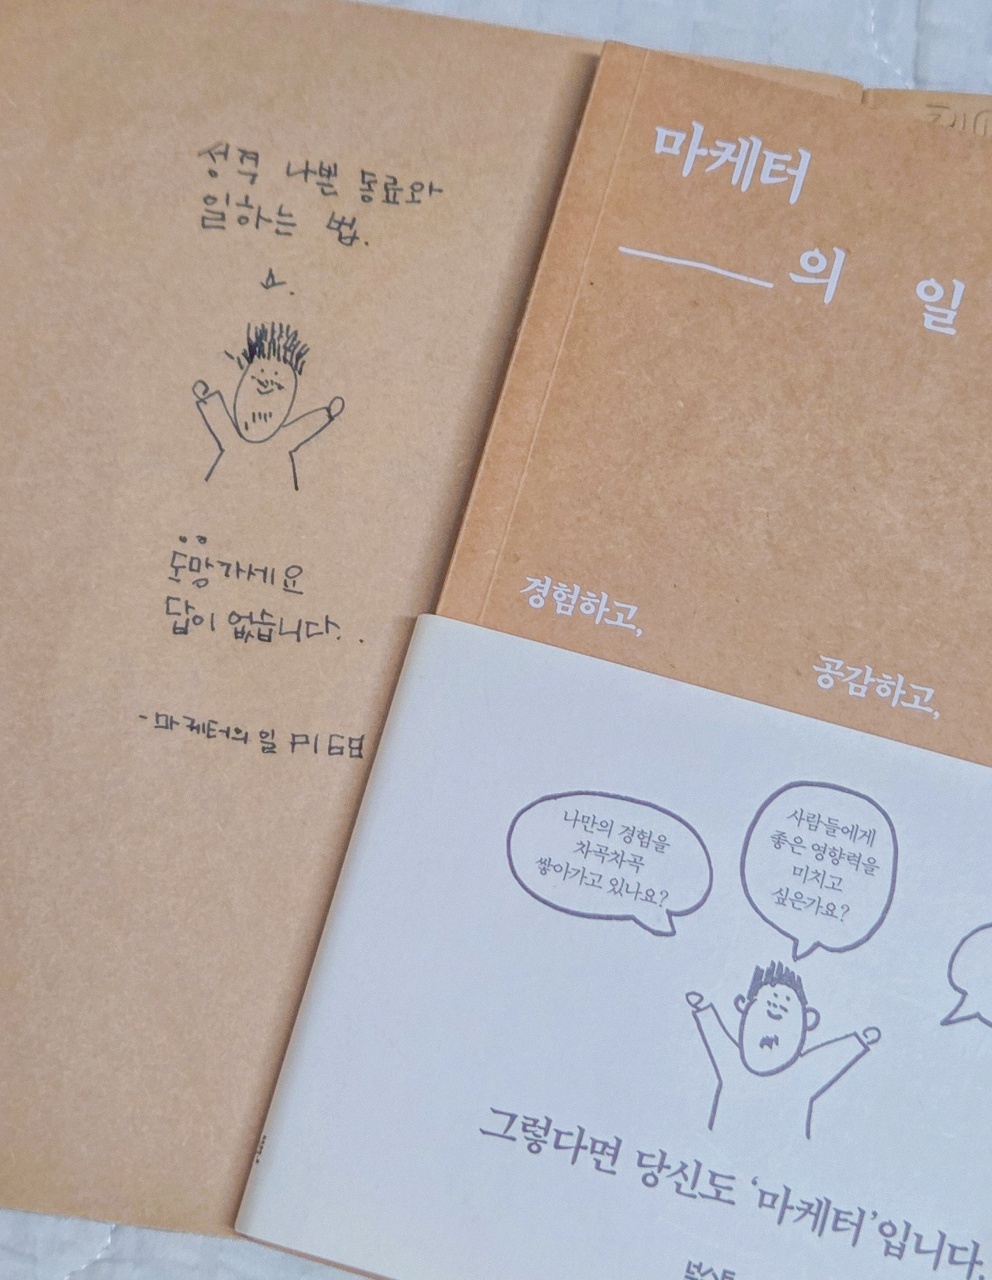 성격 나쁜 동료와
일하는 법.
도망가세요
답이 없습니다..
- 마케터의 일
마케터
의 일
경험하고,
공감하고,
나만의 경험을
차곡차곡
쌓아가고 있나요?
사람들에게
좋은 영향력을
미치고
싶은가요?
그렇다면 당신도 '마케터'입니다.
북스톤